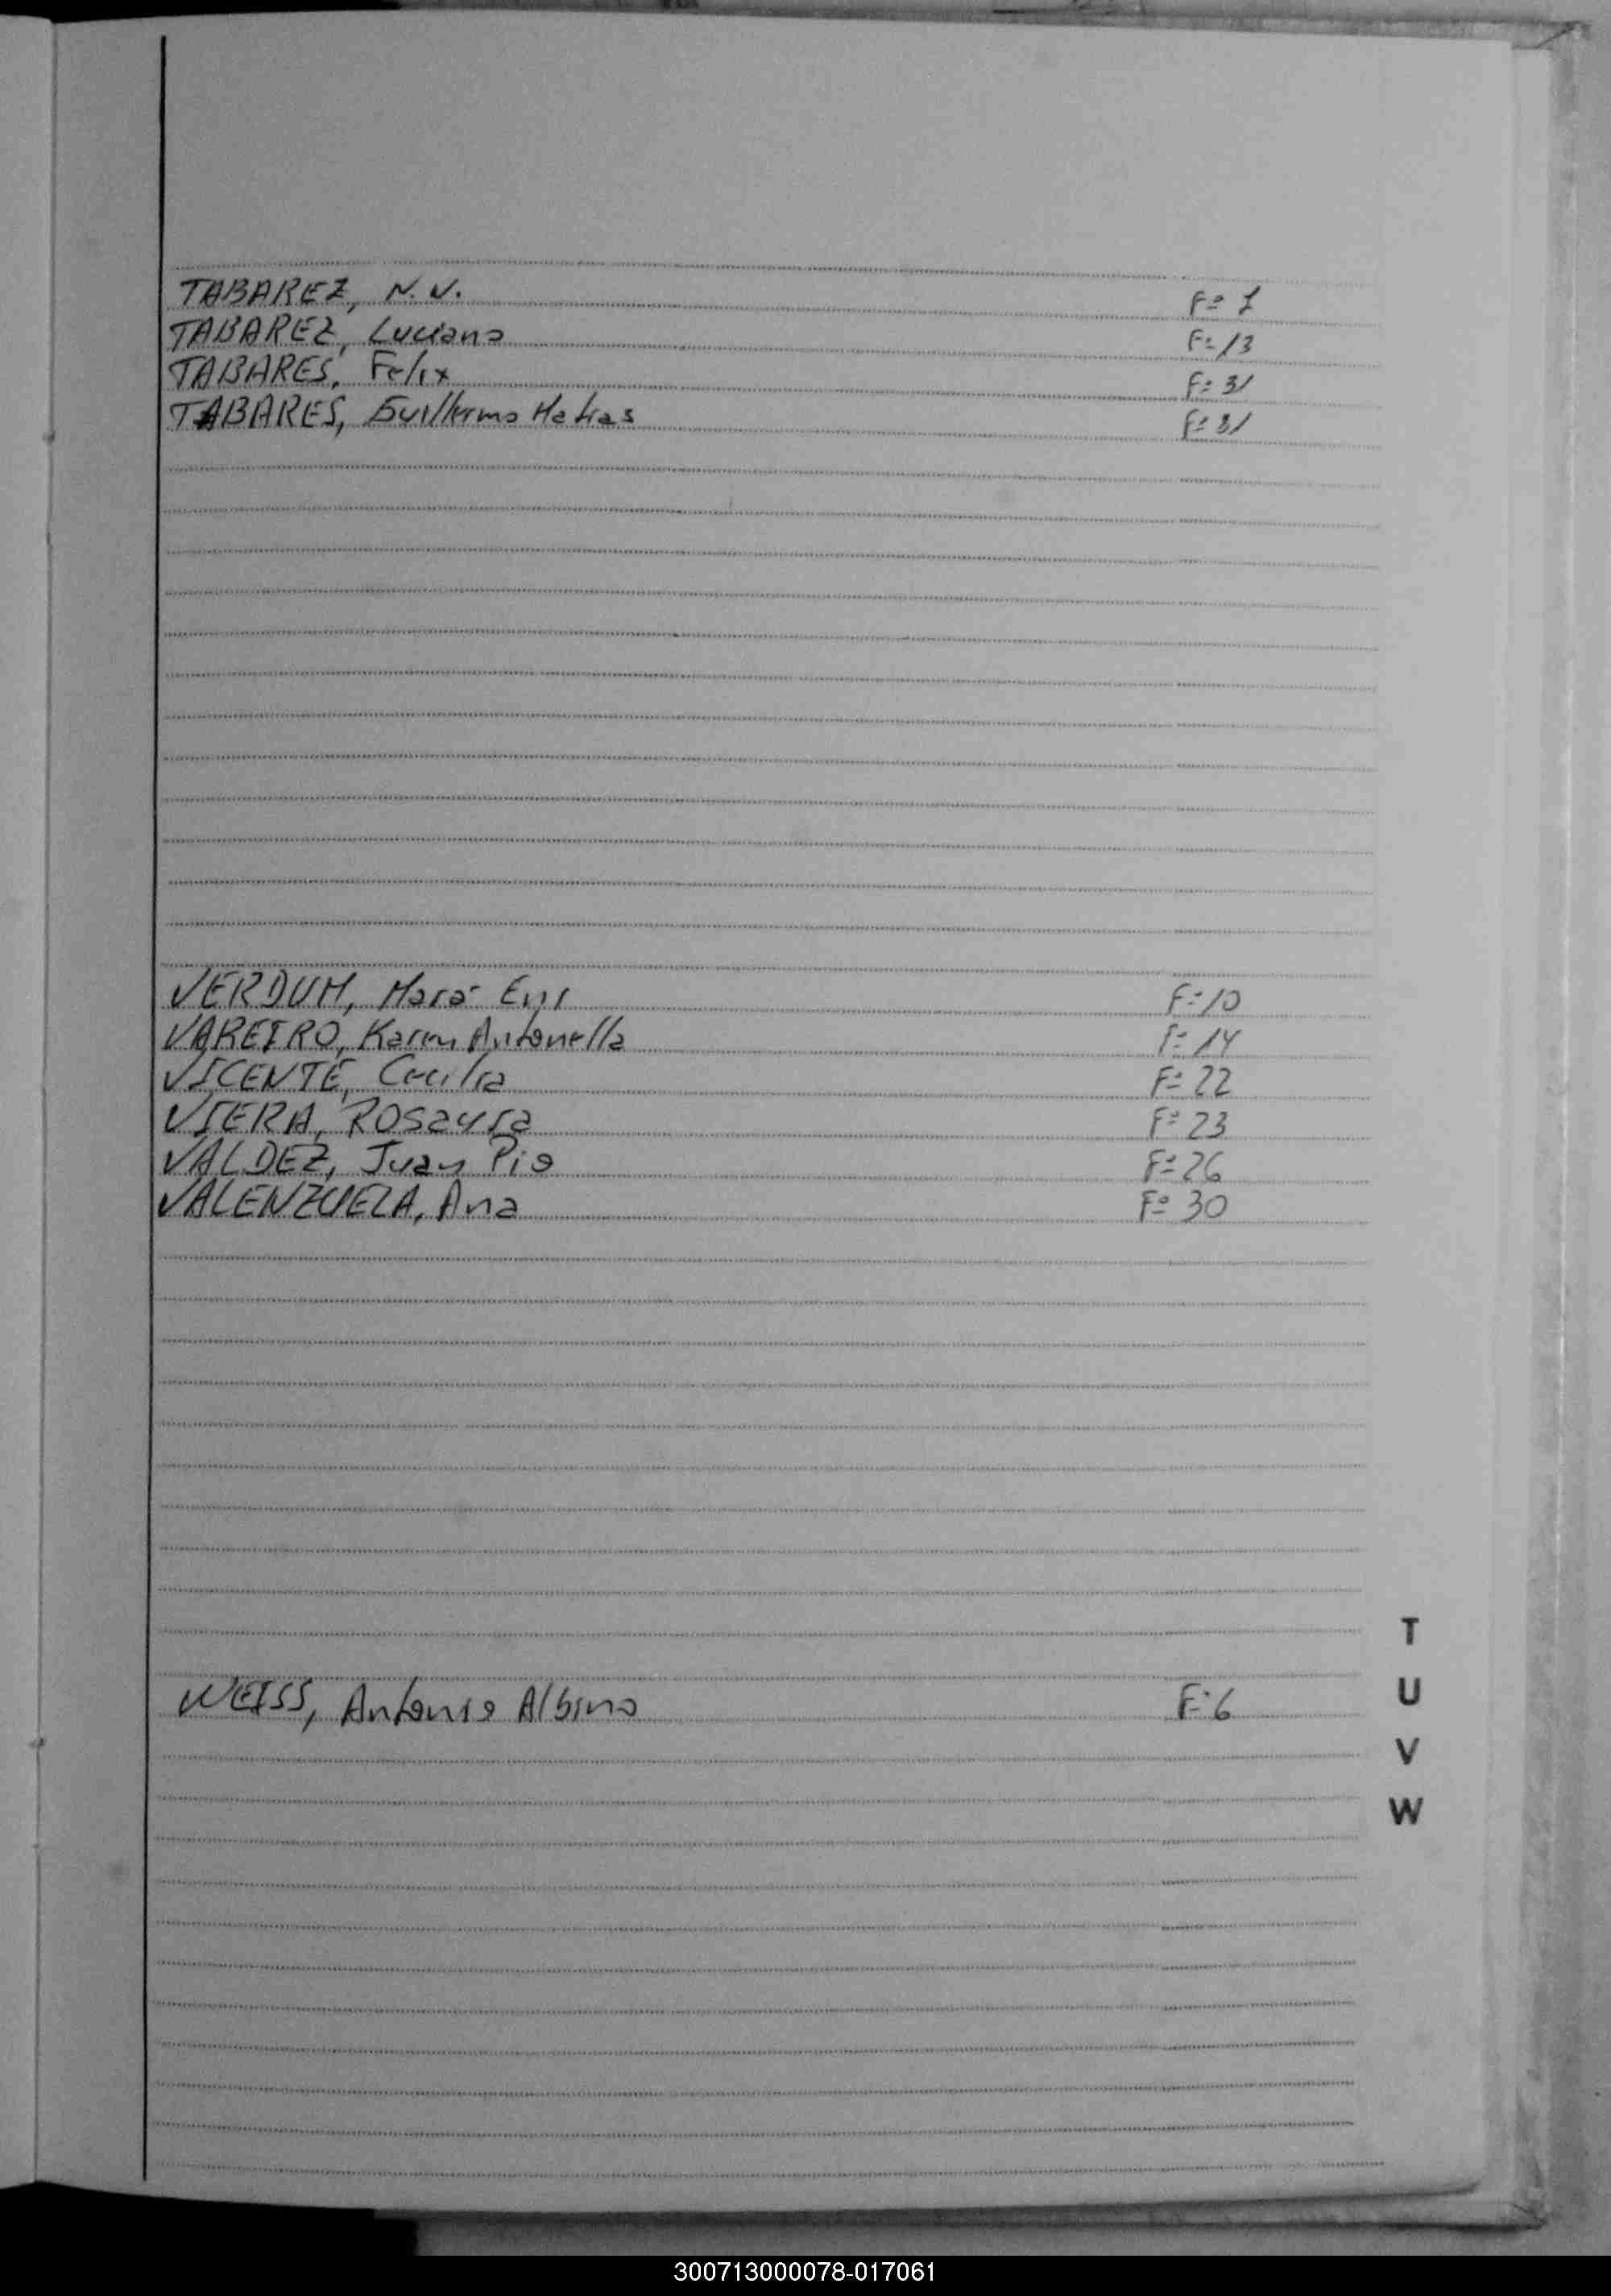 TABAREZ, N.N. Fº 1
TABAREZ, Luciano Fº 13
TABARES, Felix Fº 31
TABARES, Guillermo Matias Fº 31
VERDUM, Mara Fº 10
VAREIRO, Karen Antonella Fº 14
VICENTE, Cecilia Fº 22
VIERA, Rosaura Fº 23
VALDEZ, Juan Pio Fº 26
VALENZUELA, Ana Fº 30
T
U
WEISS, Antonio Albino Fº 6
V
W
300713000078-017061